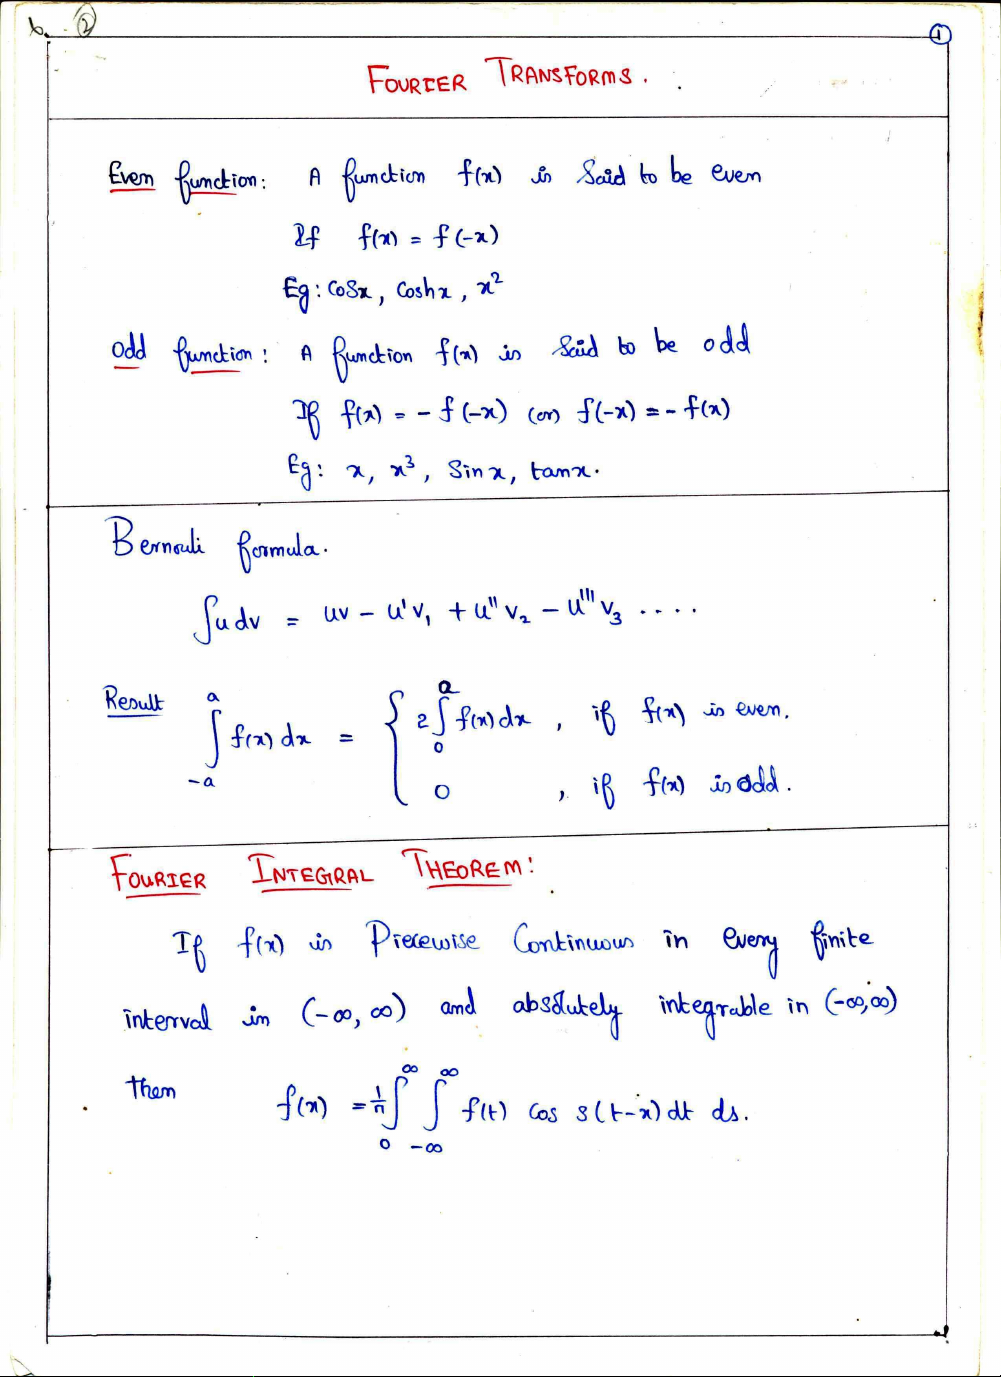 b. ②
①
FOURIER TRANSFORMS.
Even function: A function f(x) is Said to be even
If f(x) = f(-x)
Eg: Cosx, Coshx, x²
Odd function: A function f(x) is Said to be odd
If f(x) = - f(-x) (or) f(-x) = - f(x)
Eg: x, x³, Sin x, tanx.
Bernouli formula.
∫u dv = uv - u'v₁ + u''v₂ - u'''v₃ ....
Result ∫₋ₐᵃ f(x) dx = { 2∫₀ᵃ f(x) dx , if f(x) is even.
0 , if f(x) is odd.
FOURIER INTEGRAL THEOREM:
If f(x) is Piecewise Continuous in every finite
interval in (-∞, ∞) and absolutely integrable in (-∞, ∞)
then f(x) = 1/π ∫₀^∞ ∫₋∞^∞ f(t) Cos s(t-x) dt ds.